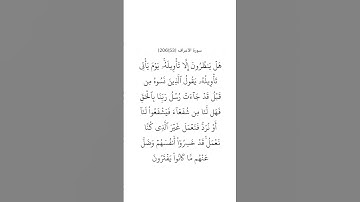 سورة الاعراف (53)(206)
هَلْ يَنظُرُونَ إِلَّا تَأْوِيلَهُۥ ۚ يَوْمَ يَأْتِى
تَأْوِيلُهُۥ يَقُولُ ٱلَّذِينَ نَسُوهُ مِن
قَبْلُ قَدْ جَآءَتْ رُسُلُ رَبِّنَا بِٱلْحَقِّ
فَهَل لَّنَا مِن شُفَعَآءَ فَيَشْفَعُوا۟ لَنَآ
أَوْ نُرَدُّ فَنَعْمَلَ غَيْرَ ٱلَّذِى كُنَّا
نَعْمَلُ ۚ قَدْ خَسِرُوٓا۟ أَنفُسَهُمْ وَضَلَّ
عَنْهُم مَّا كَانُوا۟ يَفْتَرُونَ